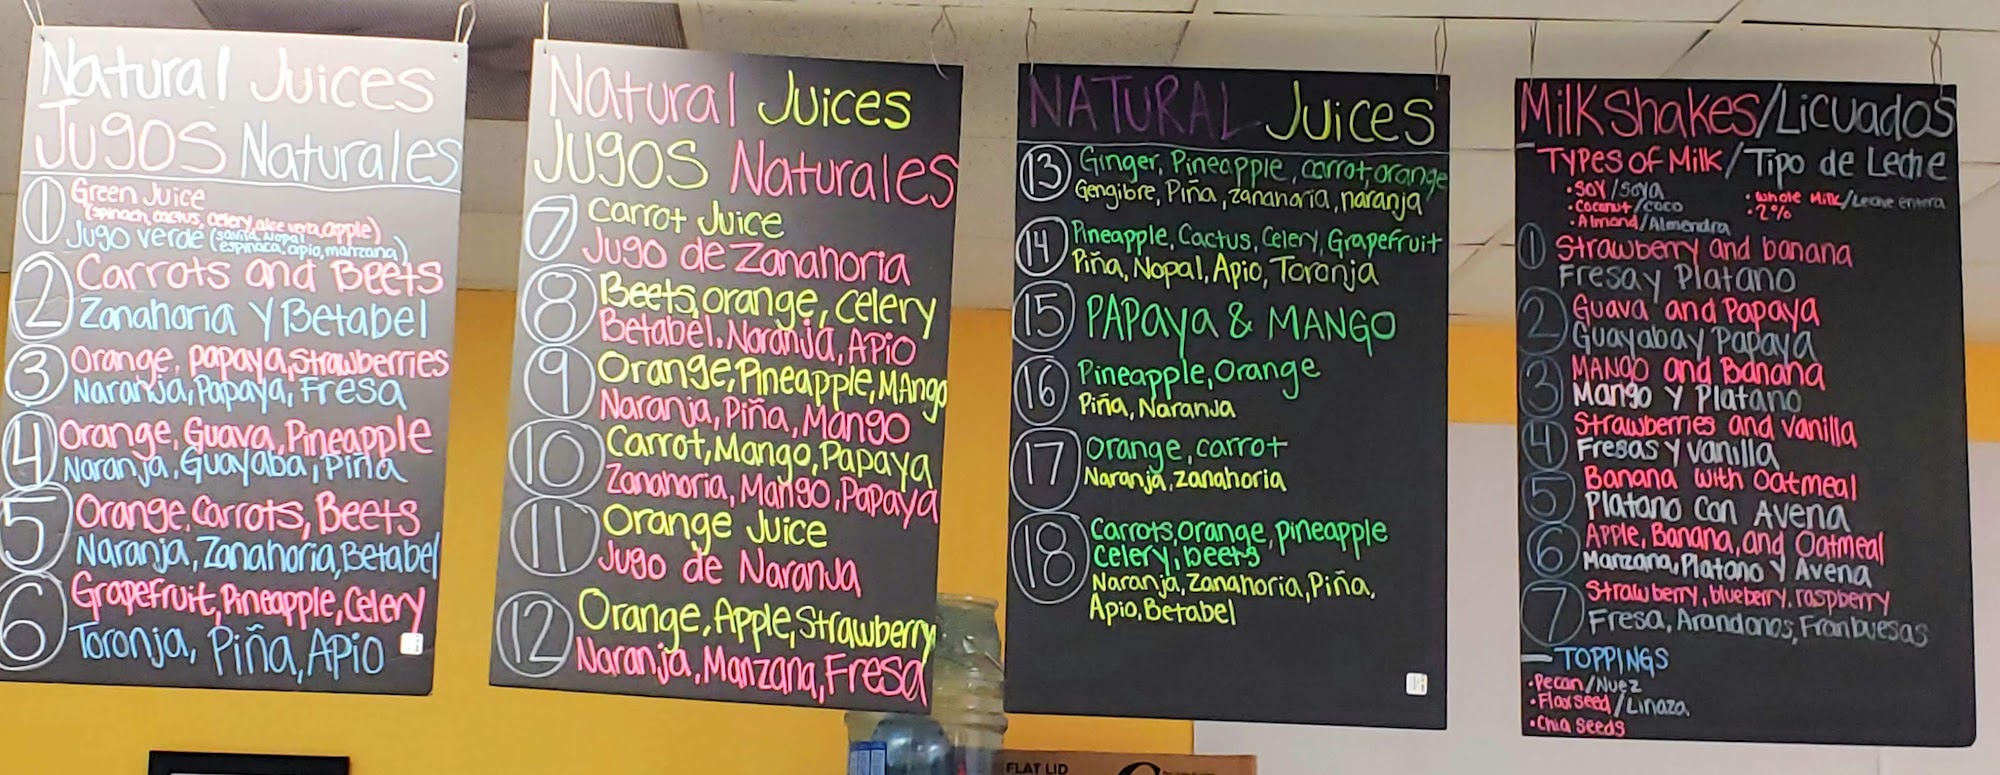 Natural Juices
Jugos Naturales
1 Green Juice
(spinach, cactus, celery, aloe vera, apple)
Jugo verde (savila, nopal
espinaca, apio, manzana)
2 Carrots and Beets
Zanahoria y Betabel
3 Orange, papaya, strawberries
Naranja, Papaya, Fresa
4 Orange, Guava, Pineapple
Naranja, Guayaba, Piña
5 Orange, Carrots, Beets
Naranja, Zanahoria, Betabel
6 Grapefruit, Pineapple, Celery
Toronja, Piña, Apio
Natural Juices
Jugos Naturales
7 Carrot Juice
Jugo de Zanahoria
8 Beets, orange, celery
Betabel, Naranja, Apio
9 Orange, Pineapple, Mango
Naranja, Piña, Mango
10 Carrot, Mango, Papaya
Zanahoria, Mango, Papaya
11 Orange Juice
Jugo de Naranja
12 Orange, Apple, Strawberry
Naranja, Manzana, Fresa
NATURAL Juices
13 Ginger, Pineapple, carrot, orange
Gengibre, Piña, zanahoria, naranja
14 Pineapple, Cactus, Celery, Grapefruit
Piña, Nopal, Apio, Toronja
15 PAPaya & MANGO
16 Pineapple, Orange
Piña, Naranja
17 Orange, carrot
Naranja, zanahoria
18 Carrots, orange, pineapple
celery, beets
Naranja, Zanahoria, Piña,
Apio, Betabel
MilkShakes/Licuados
- Types of Milk/Tipo de Leche
• Soy/Soya
• Coconut/coco
• Almond/Almendra
• Whole Milk/Leche entera
• 2%
1 Strawberry and banana
Fresa y Platano
2 Guava and Papaya
Guayaba y Papaya
3 MANGO and Banana
Mango y Platano
4 Strawberries and vanilla
Fresas y vanilla
5 Banana with Oatmeal
Platano con Avena
6 Apple, Banana, and Oatmeal
Manzana, Platano y Avena
7 Strawberry, blueberry, raspberry
Fresa, Arandanos, Franbuesas
- TOPPINGS
• Pecan/Nuez
• Flaxseed/Linaza
• Chia seeds
FLAT LID